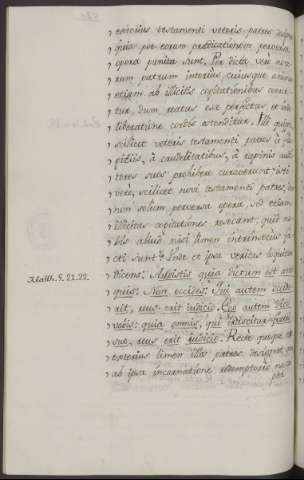 exterius testamenti veteris patres
quia per eorum praedicationem perversa
opera punita sunt. Per dicta vero novo-
rum patrum interius, cujusque animus
etiam ab illicitis cogitationibus compri-
tur, dum reatus esse perfectus et in de-
liberatione cordis ostenditur. Illi quippe,
scilicet veteris testamenti patres a fla-
gitiis, a crudelitatibus, a rapinis audi-
tores suos prohibere curaverunt: isti
vero, scilicet novi testamenti patres, dum
non solum perversa opera, sed etiam
illicitas cogitationes resecant; quid no-
bis aliud nisi limen intrinsecus fa-
cti sunt? Inde et ipsa veritas
dicens: Audistis quia dictum est anti-
quis: Non occides: Qui autem occide-
rit, reus erit judicio. Ego autem dico
vobis: quia omnis, qui irascitur fratri
suo, reus erit judicio. Recte quippe et
exterius limen illos patres
ab ipsa incarnatione redemptoris
Matth. 5. 21. 22.